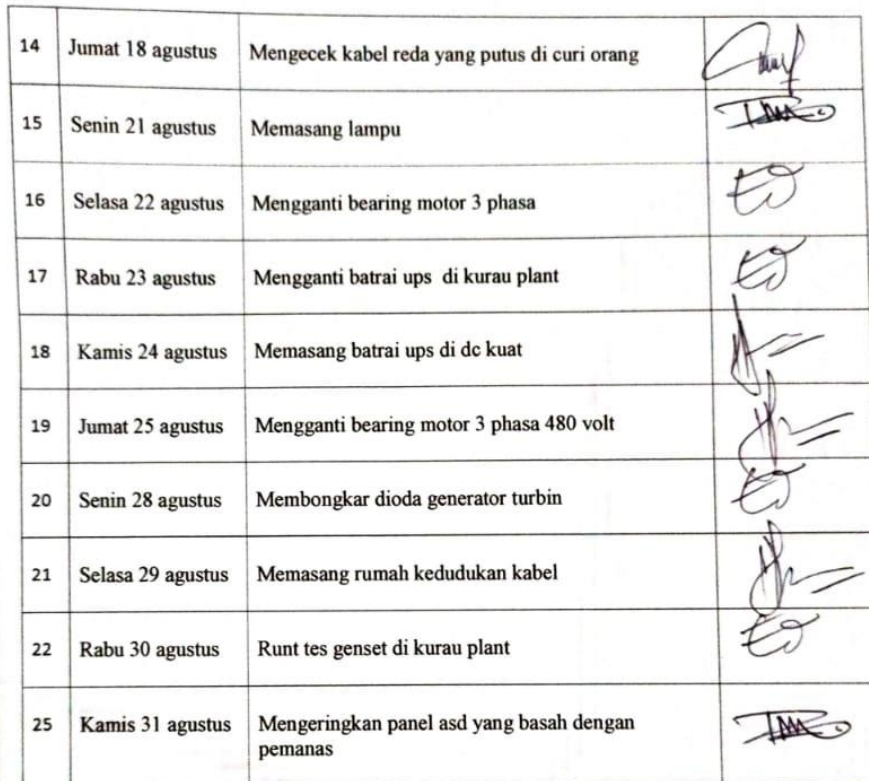 14 Jumat 18 agustus Mengecek kabel reda yang putus di curi orang
15 Senin 21 agustus Memasang lampu
16 Selasa 22 agustus Mengganti bearing motor 3 phasa
17 Rabu 23 agustus Mengganti batrai ups di kurau plant
18 Kamis 24 agustus Memasang batrai ups di dc kuat
19 Jumat 25 agustus Mengganti bearing motor 3 phasa 480 volt
20 Senin 28 agustus Membongkar dioda generator turbin
21 Selasa 29 agustus Memasang rumah kedudukan kabel
22 Rabu 30 agustus Runt tes genset di kurau plant
25 Kamis 31 agustus Mengeringkan panel asd yang basah dengan
pemanas